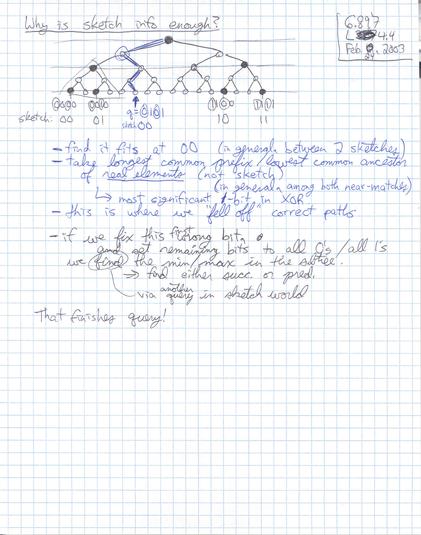 Why is sketch info enough?
6.897
L 4.4
Feb. 2003
24
0000 0010 1100 1111
q=0101
sketch: 00 01 00 10 11
- find it fits at 00 (in general: between 2 sketches)
- take longest common prefix/lowest common ancestor
of real elements (not sketch)
(in general: among both near-matches)
↳ most significant 1-bit in XOR
- this is where we "fell off" correct paths
- if we fix this first wrong bit,
and set remaining bits to all 0's/all 1's
we find the min/max in the subtree.
→ find either succ. or pred.
via another query in sketch world
That finishes query!